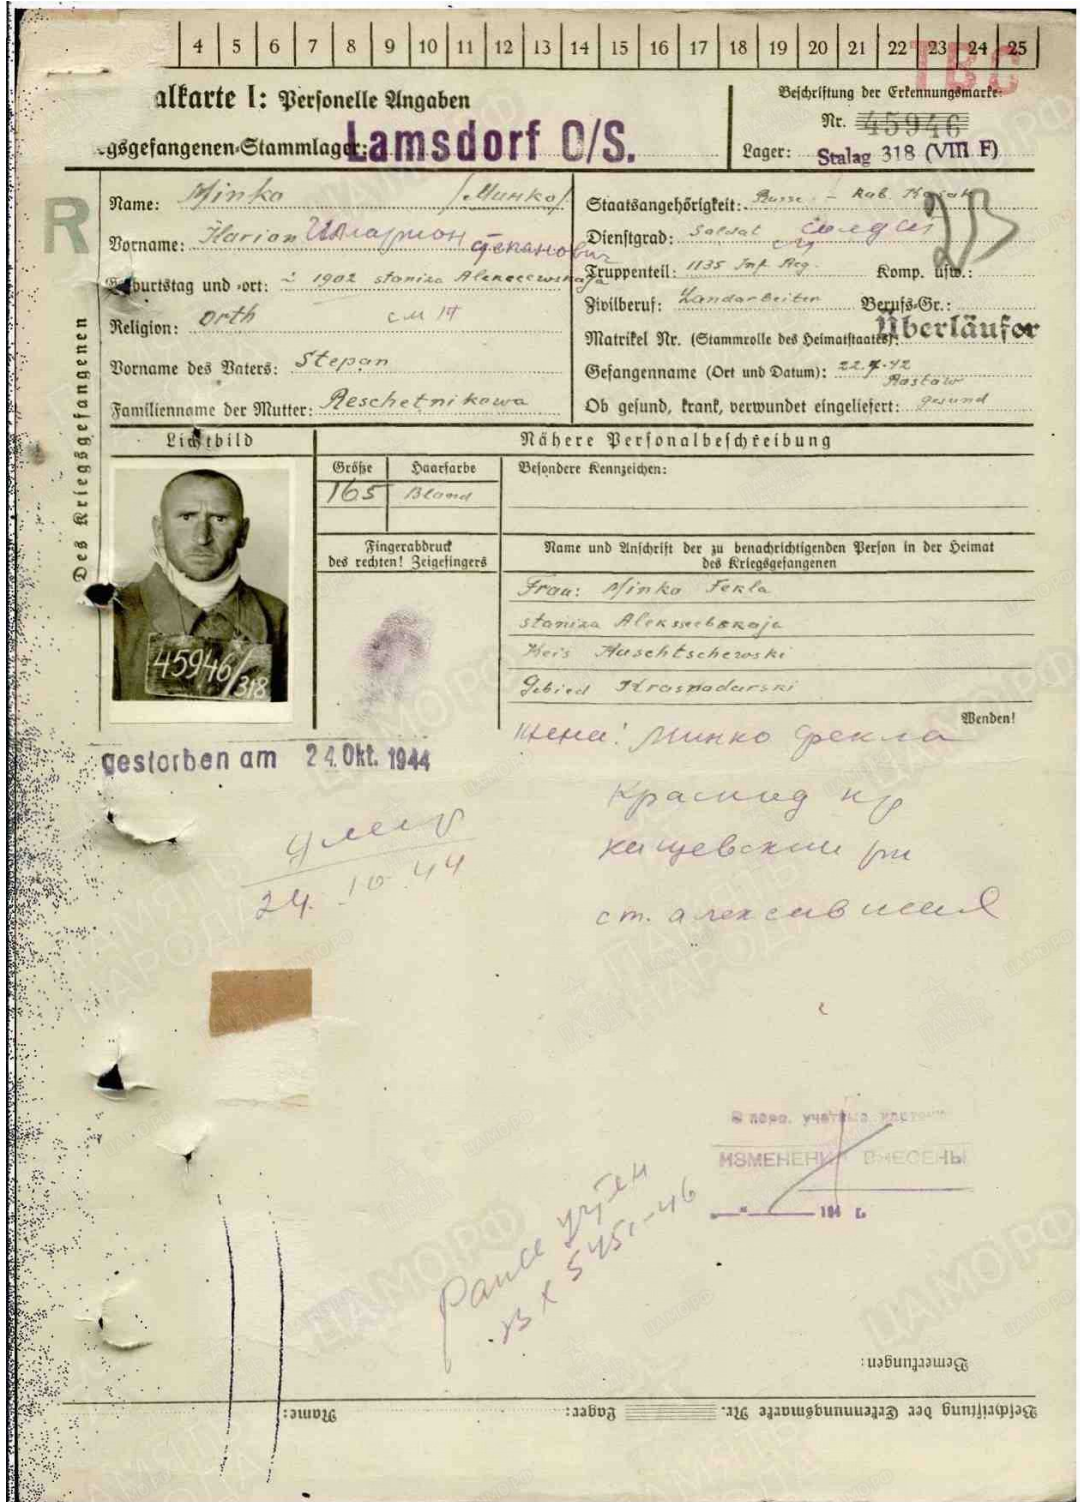 4 5 6 7 8 9 10 11 12 13 14 15 16 17 18 19 20 21 22 23 24 25
TBC
alkarte I: Personelle Angaben
Beschriftung der Erkennungsmarke:
Nr. 45946
gsgefangenen-Stammlager: Lamsdorf O/S.
Lager: Stalag 318 (VIII F)
R
Des Kriegsgefangenen
Name: Minko /Минко/
Vorname: Ilarion Иларион Степанович
Geburtstag und -ort: 1902 staniza
Religion: orth
Vorname des Vaters: Stepan
Familienname der Mutter: Reschetnikowa
Staatsangehörigkeit: Russe -
Dienstgrad: Soldat солдат
Truppenteil: 1135 Inf Reg. Komp. usw.:
Zivilberuf: Landarbeiter Berufs-Gr.:
Matrikel Nr. (Stammrolle des Heimatstaates): Überläufer
Gefangenname (Ort und Datum): 22.7.42
Rostow
Ob gesund, krank, verwundet eingeliefert: gesund
Lichtbild
Nähere Personalbeschreibung
Größe Haarfarbe
165 Blond
Besondere Kennzeichen:
Fingerabdruck
des rechten! Zeigefingers
45946/318
Name und Anschrift der zu benachrichtigenden Person in der Heimat
des Kriegsgefangenen
Frau: Minko Fekla
staniza
Kreis Kuschtschewski
Gebied Krasnodarski
Wenden!
жена: Минко Фекла
gestorben am 24. Okt. 1944
Краснод кр
кищевский рн
ст.
умер
24.10.44
В перс. учетные карточки
ИЗМЕНЕНИЯ ВНЕСЕНЫ
194 г.
Ранее учтён
в х 5451-46
Bemerkungen:
Beschriftung der Erkennungsmarke Nr. Lager: Name: